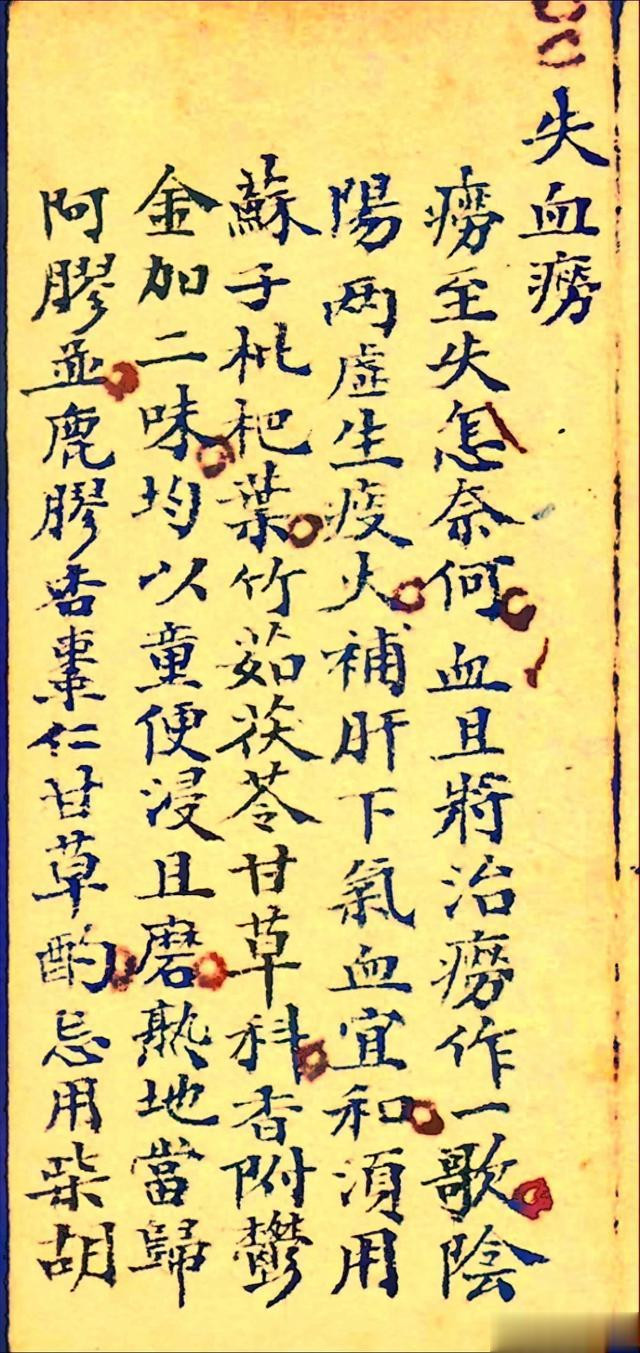 失血癆
癆至失怎奈何血且將治癆作一歌陰
陽兩虛生痰火補肝下氣血宜和須用
蘇子枇杷葉竹茹茯苓甘草科香附鬱
金加二味均以童便浸且磨熟地當歸
阿膠並鹿膠杏棗仁甘草酌忌用柴胡